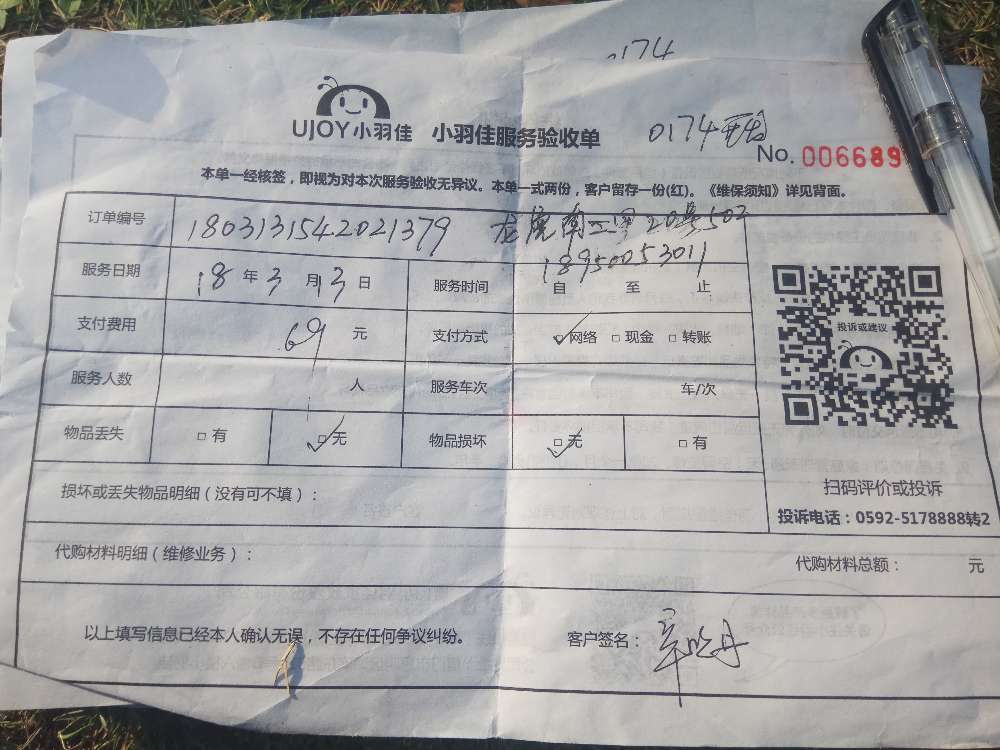 0174
UJOY小羽佳 小羽佳服务验收单 0174
No. 006689
本单一经核签，即视为对本次服务验收无异议。本单一式两份，客户留存一份(红)。《维保须知》详见背面。
订单编号 1803131542021379 龙虎南二里20号502
18950053011
服务日期 18年3月13日 服务时间 自 至 止
支付费用 69元 支付方式 网络 现金 转账
服务人数 人 服务车次 车/次
物品丢失 有 无 物品损坏 无 有
投诉或建议
损坏或丢失物品明细（没有可不填）：
扫码评价或投诉
投诉电话：0592-5178888转2
代购材料明细（维修业务）： 代购材料总额： 元
以上填写信息已经本人确认无误，不存在任何争议纠纷。 客户签名：